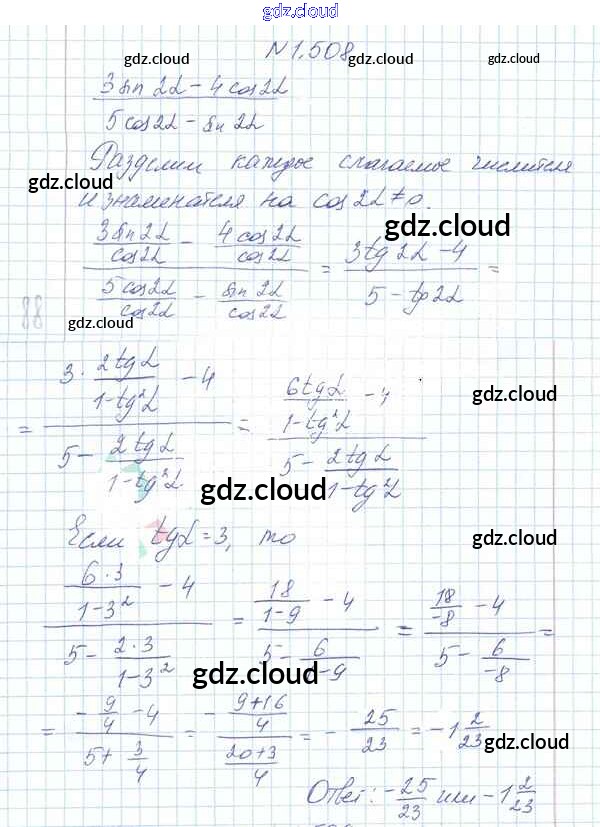 gdz.cloud
N 1.508
gdz.cloud gdz.cloud
3 sin 2α − 4 cos 2α / 5 cos 2α − sin 2α
gdz.cloud
Разделим каждое слагаемое числителя
gdz.cloud
и знаменателя на cos 2α ≠ 0.
gdz.cloud
(3 sin 2α / cos 2α − 4 cos 2α / cos 2α) / (5 cos 2α / cos 2α − sin 2α / cos 2α) = (3 tg 2α − 4) / (5 − tg 2α) =
gdz.cloud
= (3 · 2 tg α / (1 − tg² α) − 4) / (5 − 2 tg α / (1 − tg² α)) = (6 tg α / (1 − tg² α) − 4) / (5 − 2 tg α / (1 − tg² α))
gdz.cloud
gdz.cloud
Если tg α = 3, то
gdz.cloud
(6 · 3 / (1 − 3²) − 4) / (5 − 2 · 3 / (1 − 3²)) = (18 / (1 − 9) − 4) / (5 − 6 / (1 − 9)) = (18 / −8 − 4) / (5 − 6 / −8) =
gdz.cloud
gdz.cloud
= (− 9/4 − 4) / (5 + 3/4) = − ((9 + 16) / 4) / ((20 + 3) / 4) = − 25/23 = −1 2/23
gdz.cloud
Ответ: − 25/23 или −1 2/23
gdz.cloud